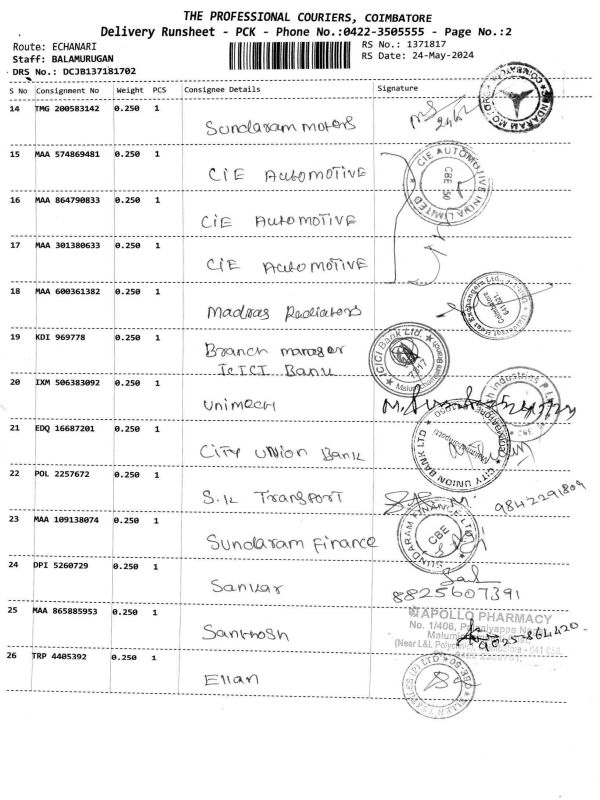 THE PROFESSIONAL COURIERS, COIMBATORE
Delivery Runsheet - PCK - Phone No.:0422-3505555 - Page No.:2
Route: ECHANARI
RS No.: 1371817
Staff: BALAMURUGAN
RS Date: 24-May-2024
DRS No.: DCJB137181702
S No Consignment No Weight PCS Consignee Details Signature
14 TMG 200583142 0.250 1
Sundaram motors
SUNDARAM MOTORS COIMBATORE
15 MAA 574869481 0.250 1
CIE AutomoTIVE
CIE AUTOMOTIVE INDIA LIMITED
CBE 50
16 MAA 864790833 0.250 1
CIE AutomoTIVE
17 MAA 301380633 0.250 1
CIE AutomoTIVE
18 MAA 600361382 0.250 1
Madras Radiators
Coimbatore
641 021.
19 KDI 969778 0.250 1
Branch manager
ICICI Bank
ICICI Bank Ltd.
20 IXM 506383092 0.250 1
Unimech
21 EDQ 16687201 0.250 1
City Union Bank
CITY UNION BANK LTD
22 POL 2257672 0.250 1
S.K Transport
9842291809
23 MAA 109138074 0.250 1
Sundaram Finance
SUNDARAM FINANCE LTD.
CBE
24 DPI 5260729 0.250 1
Sankar
8825607391
25 MAA 865885953 0.250 1
Santhosh
APOLLO PHARMACY
No. 1/406,
(Near L&L
9025-864420
26 TRP 4405392 0.250 1
Ellan